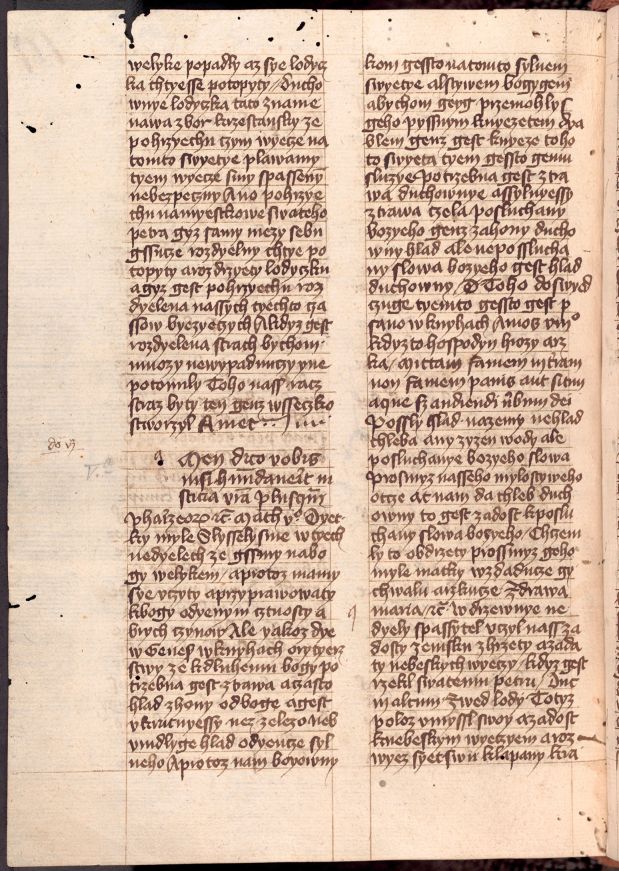 welyke popadly az sye lodycz
ka chtyesse potopyty Ducho
wnye lodyczka tato zname
nawa zbor krzestansky ze
po hrzyechu czym wyecze na
tomto swyetye plawamy
tyem wyecze smy spasseny
nebezpeczny Ano po hrzye
chu namyestkowe swateho
petra gyz samy mezy sebu
gssucze rozdyelny chtye po
topyty a rozdrzyety lodyczku
a gyz gest po hrzyechu roz
dyelena nassych tyechto cza
ssow byezyeczych A kdyz gest
rozdyelena strach bychom
mnozy newypadnuczy yne
potonuly Toho nass racz
strzaz byty ten genz wsseczko
stworzyl Amen
do
Amen dico vobis
nisi habundaverit iu
sticia vestra plusquam
phariseorum etc Math v Dyet
ky myle Slyssely sme w tyech
nedyelech ze gssmy nabo
gy welykem / a protoz mamy
sye uczyty a przyprawowaty
k bogy odyenym cztnosty a
brych czynow Ale yakoz dye
w Genesi w knyhach o wytyez
stwy ze k dluhemu bogy po
trzebna gest strawa a czasto
hlad zhony od boge a gest
ukrutnyessy nez zelezo neb
undlyge hlad odyencze syl
neho A protoz nam bogowny
kom gessto na tomto sylnem
swyetye a lstywem bogygem
abychom geyg przemohly s
geho pyssnym knyezetem dya
blem genz gest knyeze toho
to swyeta tyem gessto gemu
sluzye potrzebna gest stra
wa duchownye a ssylnyessy
strawa czela posluchany
bozyeho genz zahony ducho
wny hlad ale neposslucha
ny slowa bozyeho gest hlad
duchowny / O Toho doswyed
czuge tyemto gessto gest p
sano w knyhach Amos viii
kdyz to hospodyn hrozy arz
ka / Mittam famem in terram
non famem panis aut sitim
aque sed audiendi verbum dei
Possly hlad na zemy ne hlad
chleba any zyzen wody ale
posluchanye bozyeho slowa
Prosmyz nasseho mylostyweho
otcze at nam da chleb duch
owny to gest zadost k poslu
chany slowa bozyeho / Chcem
ly to obdrzety prossmyz geho
myle matky wzdaducze gy
chwalu a rzkucze Zdrawa
maria etc W drzewnye ne
dyely spassytel uczyl nass za
dosty zemsku zbrzety a zada
ty nebeskych wyeczy / kdyz gest
rzekl swatemu petru / Duc
in altum Zwed lody Totyz
poloz umyssl swoy a zadost
k nebeskym wyeczyem a roz